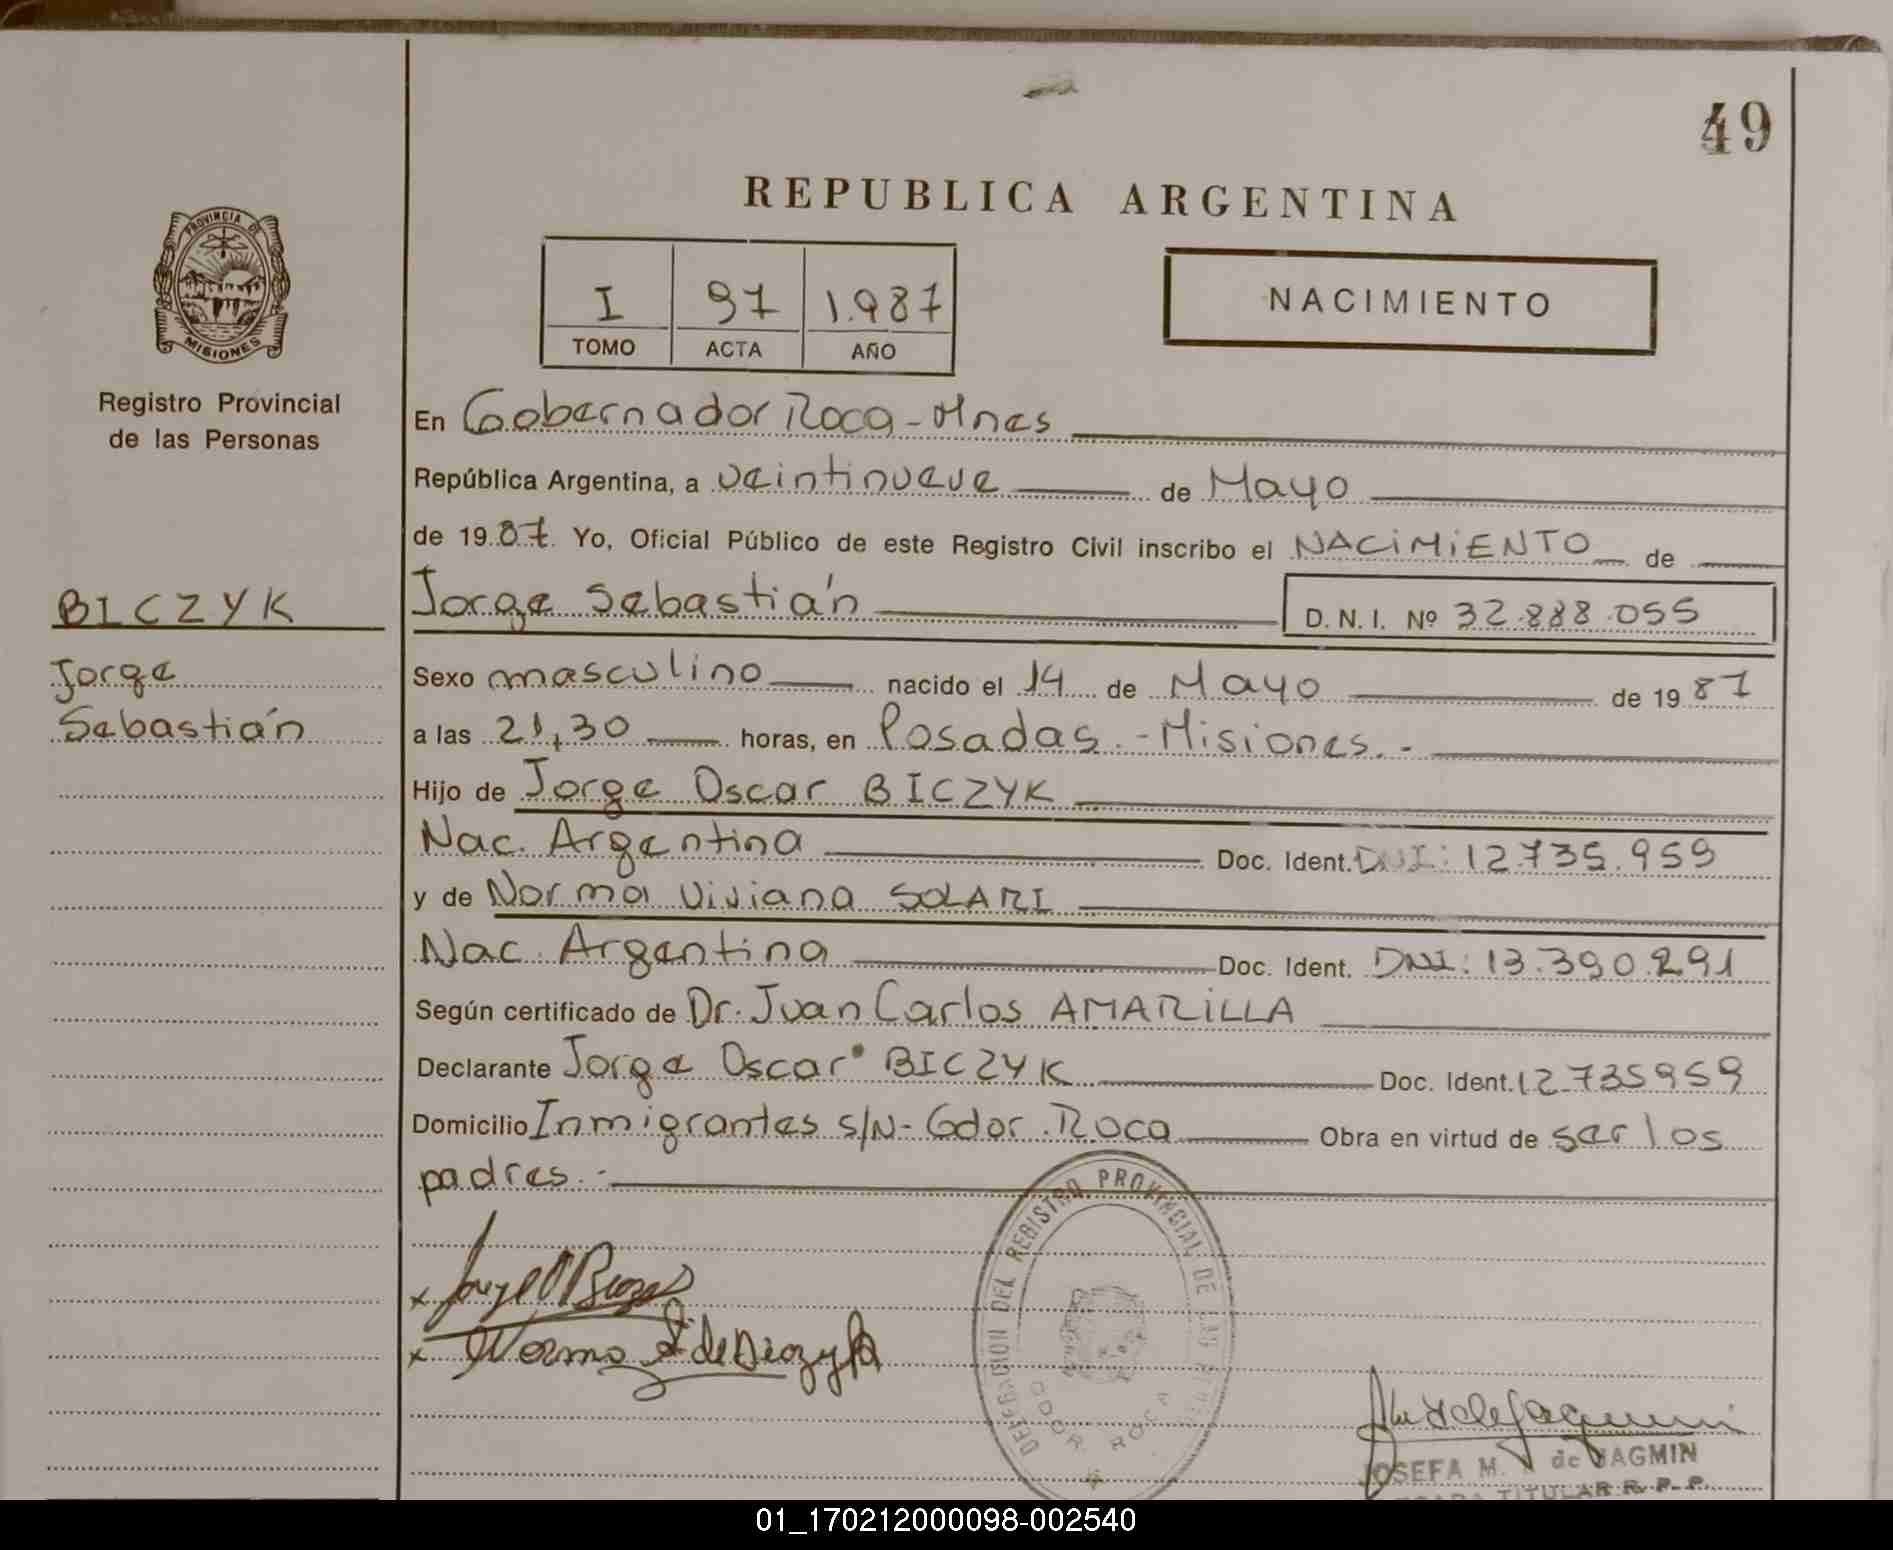 49
REPUBLICA ARGENTINA
PROVINCIA DE
MISIONES
Registro Provincial
de las Personas
I 97 1.987
TOMO ACTA AÑO
NACIMIENTO
En Gobernador Roca - Mnes
República Argentina, a veintinueve de Mayo
de 1987. Yo, Oficial Público de este Registro Civil inscribo el NACIMIENTO de
BICZYK
Jorge Sebastián D. N. I. Nº 32.888.055
Jorge
Sebastián
Sexo masculino nacido el 14 de Mayo de 1987
a las 21,30 horas, en Posadas.-Misiones.-
Hijo de Jorge Oscar BICZYK
Nac. Argentina Doc. Ident. DNI: 12.735.959
y de Norma Viviana SOLARI
Nac. Argentina Doc. Ident. DNI: 13.390.291
Según certificado de Dr. Juan Carlos AMARILLA
Declarante Jorge Oscar BICZYK Doc. Ident. 12735959
Domicilio Inmigrantes s/N- Gdor. Roca Obra en virtud de ser los
padres.-
DELEGACION DEL REGISTRO PROVINCIAL DE LAS
GDOR ROCA
x
x Norma S. de
JOSEFA M. de JAGMIN
TITULAR R. P. P.
01_170212000098-002540